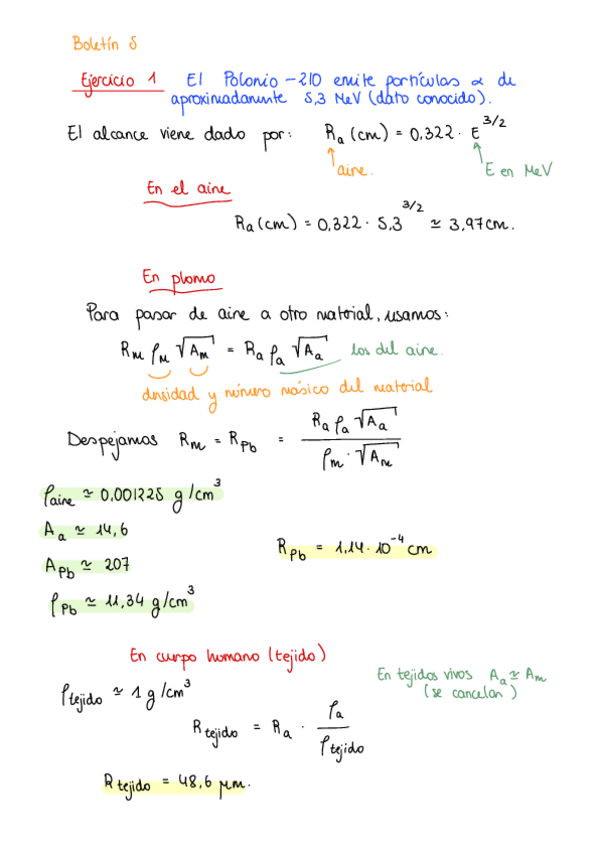 Boletín 5
Ejercicio 1 El Polonio-210 emite partículas α de
aproximadamente 5,3 MeV (dato conocido).
El alcance viene dado por: Ra (cm) = 0,322 · E^3/2
aire. E en MeV
En el aire
Ra (cm) = 0,322 · 5,3^3/2 ≃ 3,97cm.
En plomo
Para pasar de aire a otro material, usamos:
Rm ρm √Am = Ra ρa √Aa los del aire.
densidad y número másico del material
Despejamos Rm = RPb = Ra ρa √Aa / ρm · √Am
ρaire ≃ 0,001225 g/cm^3
Aa ≃ 14,6
RPb = 1,14 · 10^-4 cm
APb ≃ 207
ρPb ≃ 11,34 g/cm^3
En cuerpo humano (tejido)
En tejidos vivos Aa ≃ Am
(se cancelan)
ρtejido ≃ 1 g/cm^3
Rtejido = Ra · ρa / ρtejido
Rtejido = 48,6 μm.